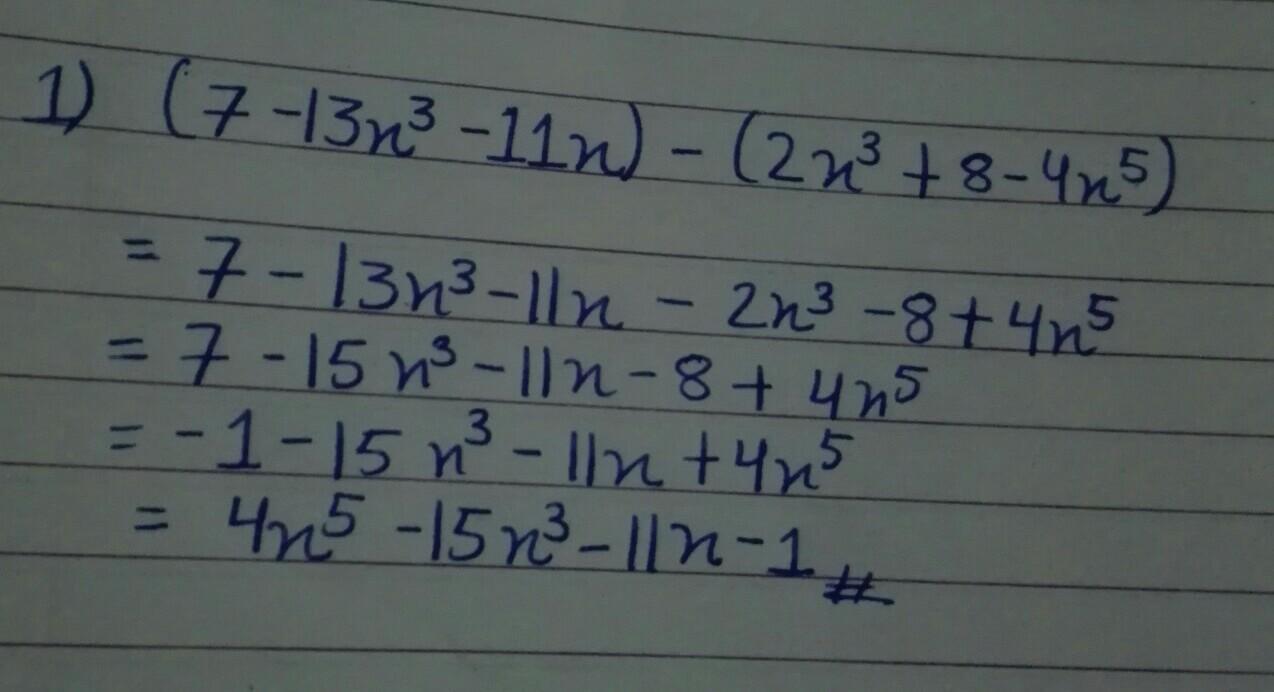 1) (7 -13x³ -11x) - (2x³ + 8 - 4x⁵)
= 7 - 13x³ - 11x - 2x³ - 8 + 4x⁵
= 7 - 15x³ - 11x - 8 + 4x⁵
= -1 - 15x³ - 11x + 4x⁵
= 4x⁵ - 15x³ - 11x - 1 #